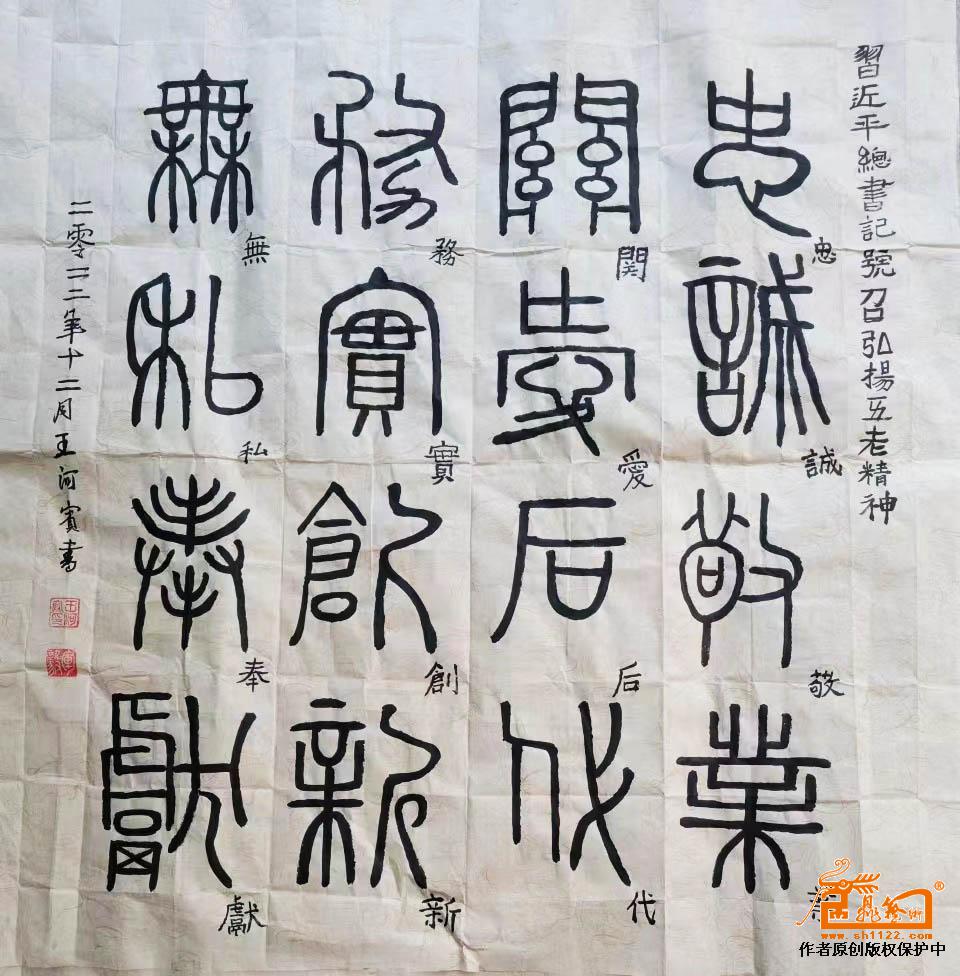 習近平總書記號召弘揚五老精神
忠誠敬業
忠誠敬
關愛后代
関愛后代
務實創新
務實創新
無私奉獻
無私奉獻
二零二二年十二月王河賓書
www.sh1122.com
作者原创版权保护中